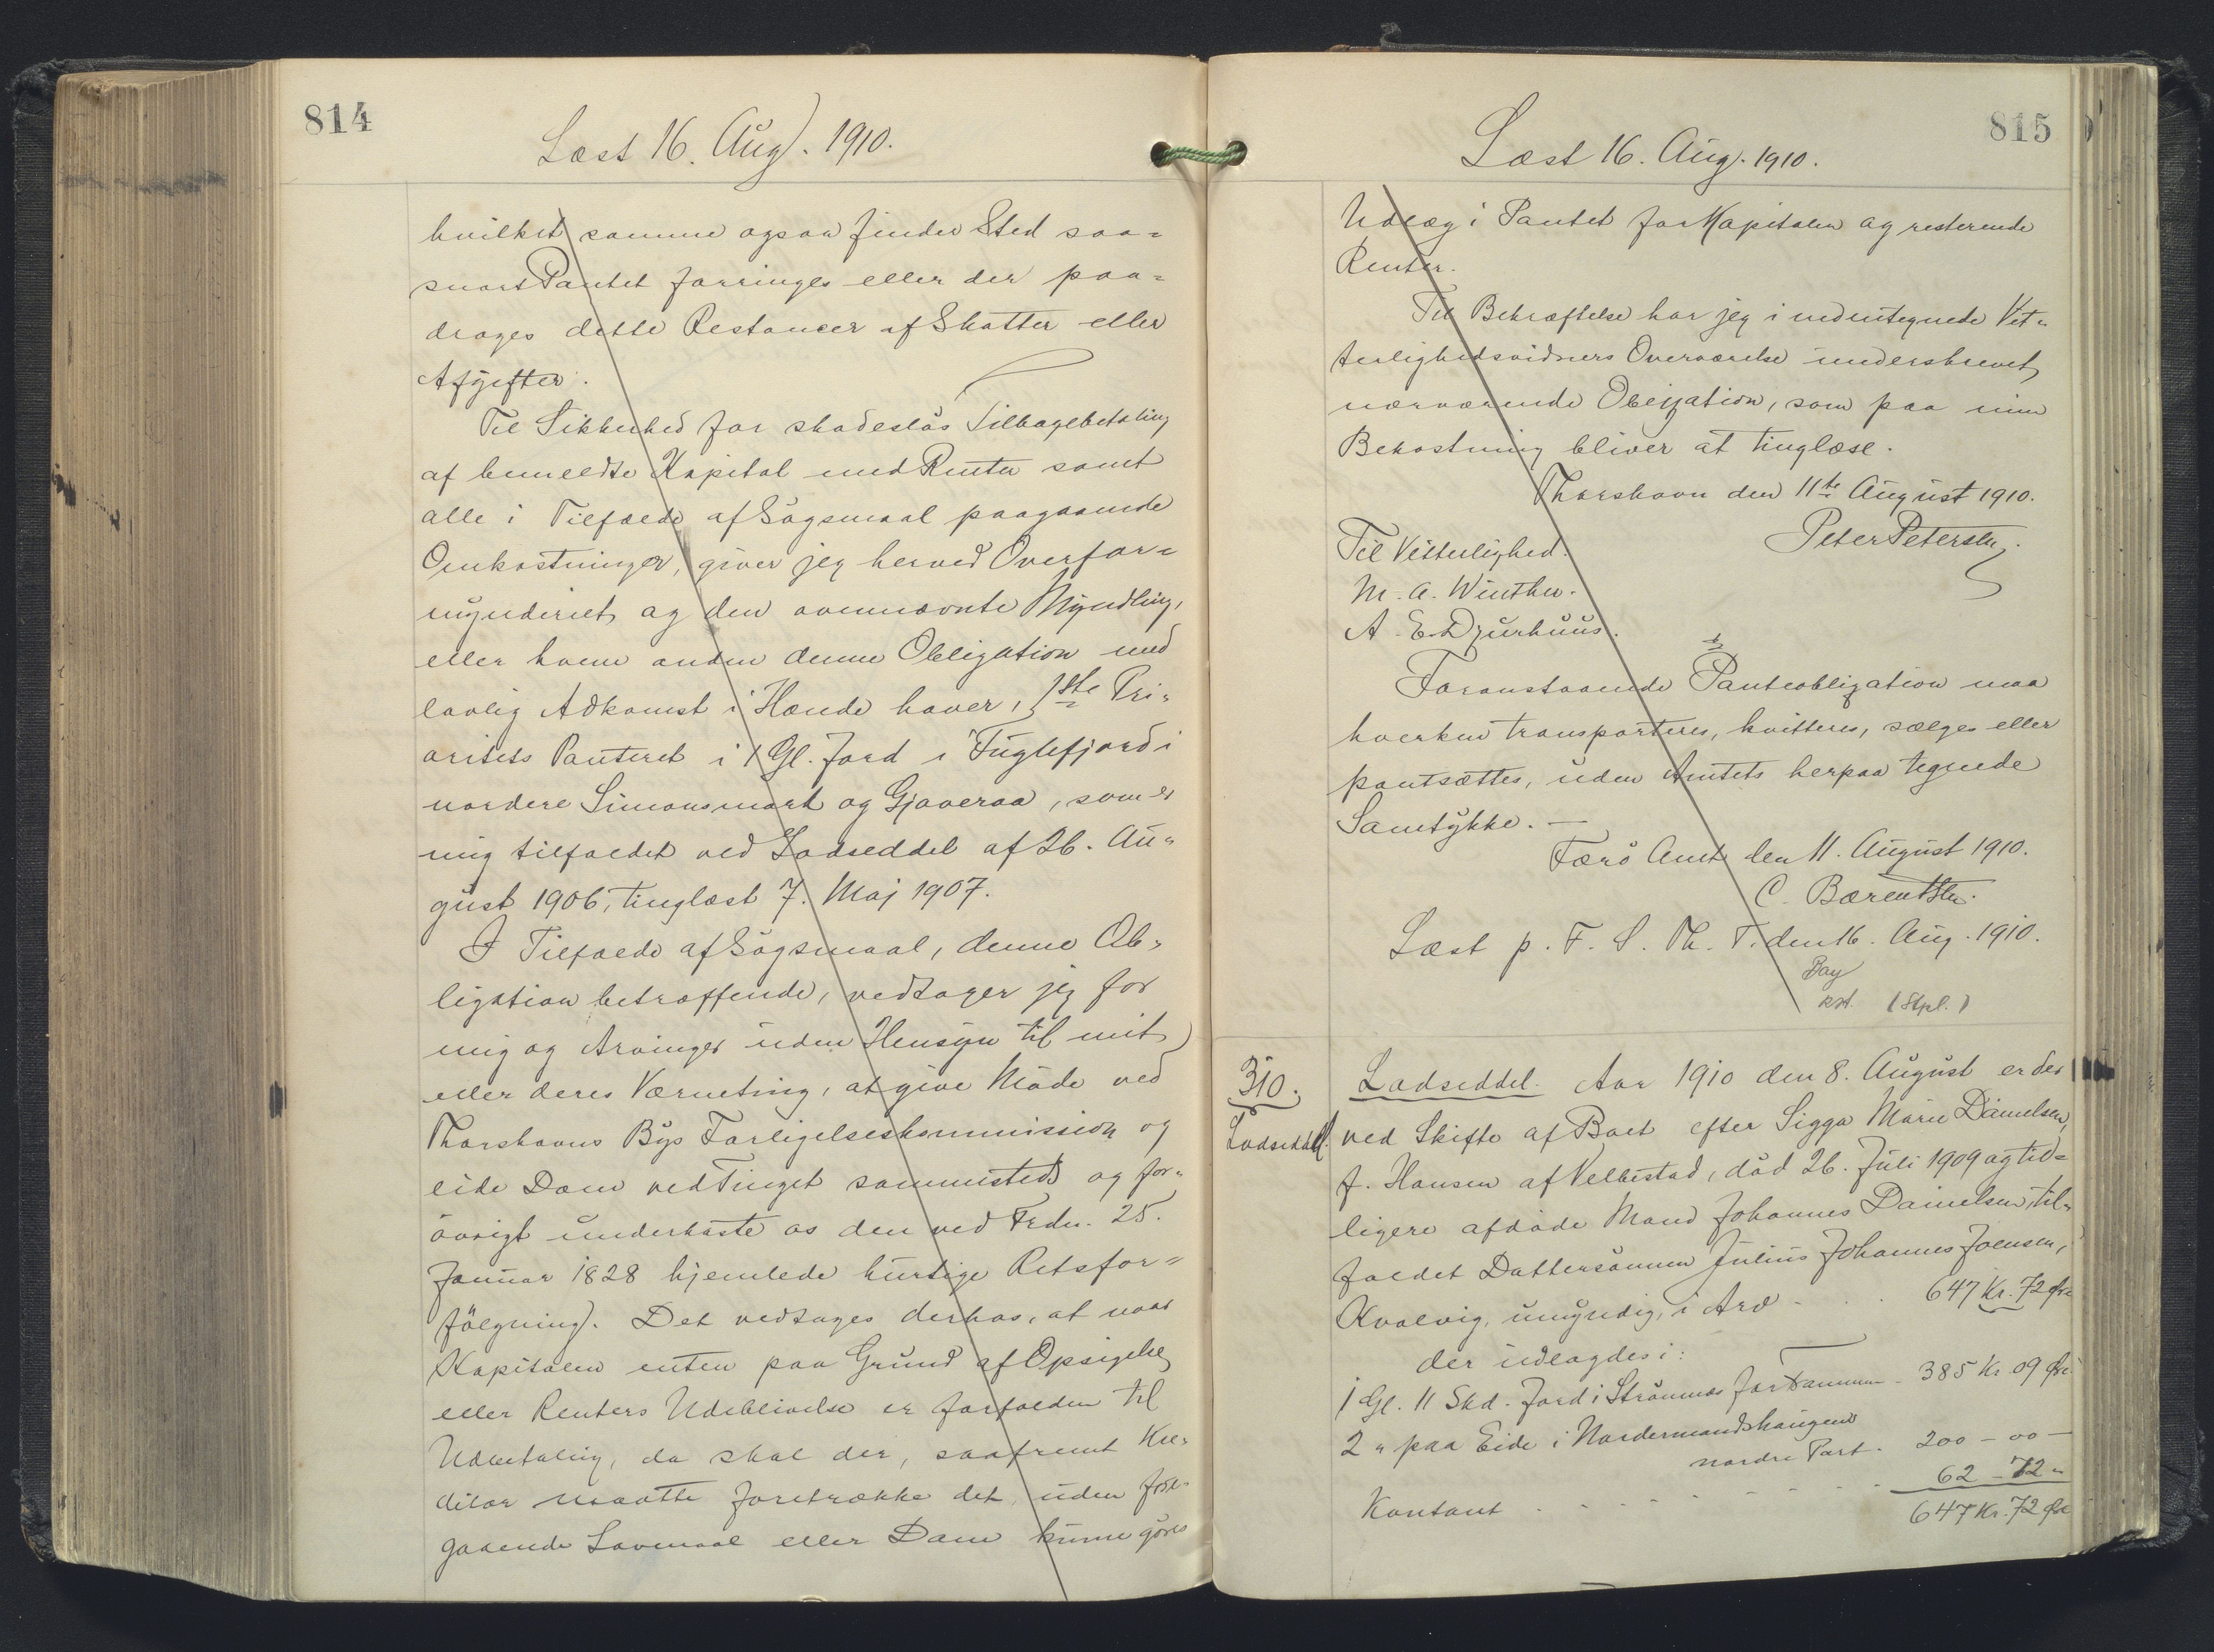 814
Læst 16. Aug. 1910.
hvilket samme ogsaa finder Sted saa=
snart Pantet forringes eller der paa=
drages dette Restancer af Skatter eller
Afgifter.
Til Sikkerhed for skadeslös Tilbagebetaling
af bemeldte Kapital med Renter samt
alle i Tilfælde af Sögsmaal paagaaende
Omkostninger, giver jeg herved Overfor=
mynderiet og den ovennævnte Myndling,
eller hvem anden denne Obligation med
lovlig Adkomst i Hænde haver, 1ste Pri=
oritets Panteret i 1 Gl. Jord i Fuglefjord i
nordere Simonsmark og Gjaveraa, som er
mig tilfaldet ved Lodseddel af 26. Au=
gust 1906, tinglæst 7. Maj 1907.
I Tilfælde af Sögsmaal, denne Ob=
ligation betræffende, vedtager jeg for
mig og Arvinger uden Hensyn til mit
eller deres Værneting, at give Möde ved
Thorshavns Bys Forligelseskommission og
lide Dom ved Tinget sammesteds og for=
övrigt underkaste os den ved Frdn. 25.
Januar 1828 hjemlede hurtige Retsfor=
fölgning. Det vedtages derhos, at naar
Kapitalen enten paa Grund af Opsigelse
eller Renters Udeblivelse er forfalden til
Udbetaling, da skal der, saafremt Kre=
ditor maatte foretrække det, uden fore=
gaaende Lovmaal eller Dom kunne göres
815
Læst 16. Aug. 1910.
Udlæg i Pantet for Kapitalen og resterende
Renter.
Til Bekræftelse har jeg i medundtegnede Vit=
terlighedsvidners Overværelse underskrevet
nærværende Obligation, som paa min
Bekostning bliver at tinglæse.
Thorshavn den 11te August 1910.
Peter Petersen.
Til Vitterlighed.
M. A. Winther.
A. E. Djurhuus.
Foranstaaende Panteobligation maa
hverken transporteres, kvitteres, sælges eller
pantsættes, uden Amtets herpaa tegnede
Samtykke. —
Færö Amt, den 11. August 1910.
C. Bærentsen.
Læst p. F. S. Th. T. den 16. Aug. 1910.
Bay
kst. (Stpl.)
310.
Lodseddel.
Lodseddel. Aar 1910 den 8. August er der
ved Skifte af Boet efter Sigga Marie Danielsen,
f. Hansen af Velbestad, död 26. Juli 1909 og tid=
ligere afdöde Mand Johannes Danielsen, til=
faldet Dattersönnen Julius Johannes Joensen,
Kvalvig, umyndig, i Arv . . 647 Kr. 72 Øre
der udlagdes i:
1 Gl. 11 Skd. Jord i Strömnæs for Sammen 385 Kr 09 Øre
2 " paa Eide i Nordermandshaugens
nordre Part. 200 - 00 —
Kontant . . . . . . . . 62 - 72 "
647 Kr. 72 Øre